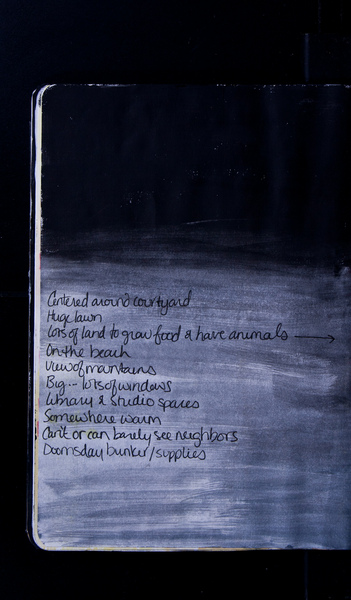 Centered around courtyard
Huge lawn
Lots of land to grow food & have animals →
On the beach
View of mountains
Big -- lots of windows
Library & studio spaces
Somewhere warm
Can't or can barely see neighbors
Doomsday bunker/supplies